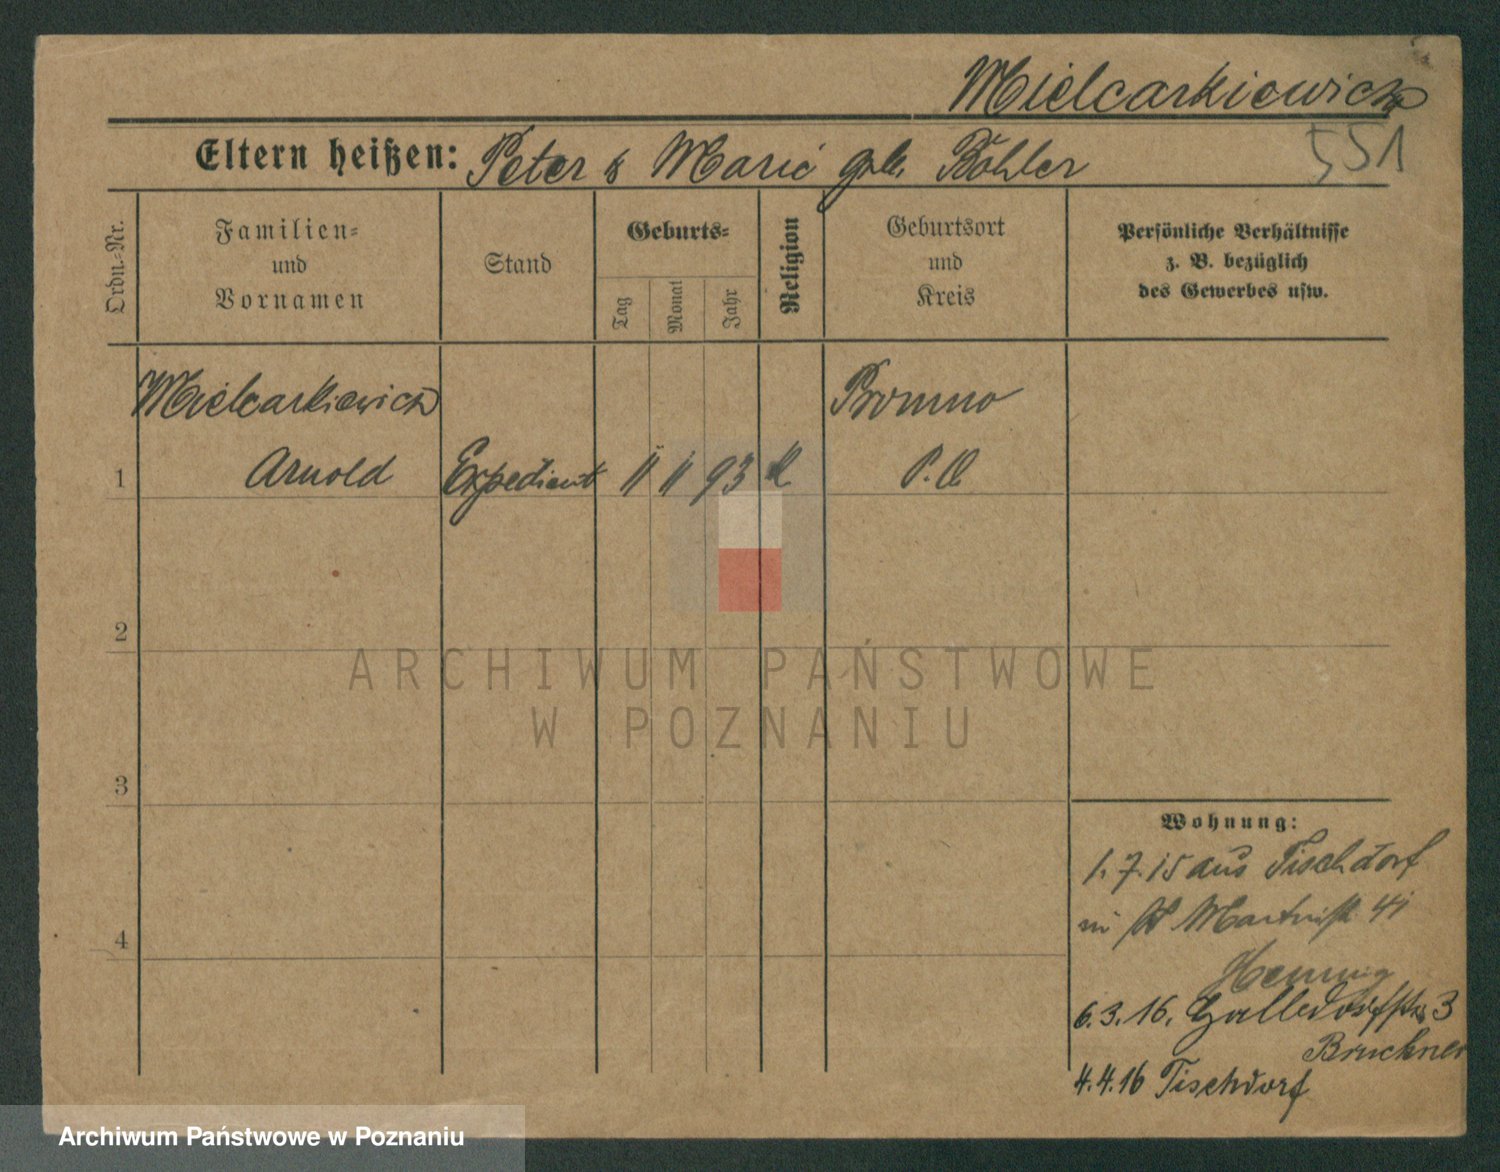 Mielcarkiewicz
551
Eltern heißen: Peter & Marie geb. Böhler
Ordn.-Nr.
Familien-
und
Vornamen
Stand
Geburts-
Tag
Monat
Jahr
Religion
Geburtsort
und
Kreis
Persönliche Verhältnisse
z. B. bezüglich
des Gewerbes usw.
Mielcarkiewicz
Promno
1 Arnold Expedient 11 11 93 K P.O
2
3
4
ARCHIWUM PAŃSTWOWE
W POZNANIU
Wohnung:
1.7.15 aus Tischdorf
in St Martinstr. 41
Hennig
6.3.16. Halldorfstr. 3
Bruckner
4.4.16 Tischdorf
Archiwum Państwowe w Poznaniu